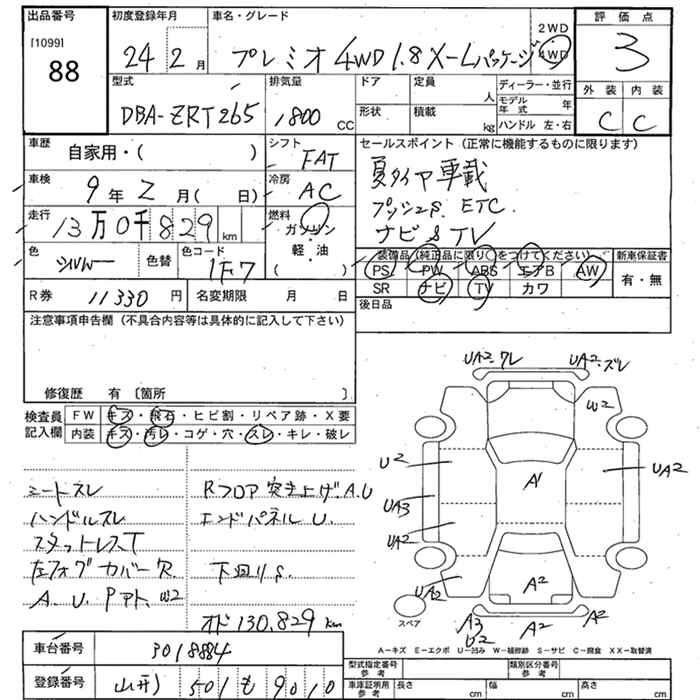 出品番号 初度登録年月 車名・グレード 評価点
[1099]
88
24年2月 プレミオ 4WD 1.8 X-Lパッケージ 2WD 4WD 3
型式 排気量 ドア 定員 人 ディーラー・並行 外装 内装
DBA-ZRT265 1800 CC 形状 積載 kg モデル年式 年 ハンドル 左・右 C C
車歴 自家用・( ) シフト FAT セールスポイント (正常に機能するものに限ります)
車検 9年2月( 日) 冷房 AC 夏タイヤ車載
走行 13万0千829km 燃料 ガソリン・軽油 ( ) プッシュS. ETC.
ナビ&TV
色 シルバー 色替 色コード 1F7 装備品(純正品に限り○をつけてください) 新車保証書
PS PW ABS エアB AW 有・無
SR ナビ TV カワ
R券 11330円 名変期限 月 日 後日品
注意事項申告欄 (不具合内容等は具体的に記入して下さい)
修復歴 有 〔箇所 〕
検査員記入欄 FW キズ・飛石・ヒビ割・リペア跡・X要
内装 キズ・汚レ・コゲ・穴・スレ・キレ・破レ
UA2・ワレ UA2・ズレ
W2
U2 UA2
A1
UA3
UA2
UA2 A2
A3 A2 A2
W2
スペア
シートスレ Rフロア突き上げ.A.U
ハンドルスレ エンドパネル U.
スタットレスT
左フォグカバー欠. 下廻りS.
A.U.Pアト.W2
オド130,829km
A-キズ E-エクボ U-凹み W-補修跡 S-サビ C-腐食 XX-取替済
車台番号 3018884
登録番号 501 も 9010
型式指定番号 参考 類別区分番号 参考
車庫証明用 参考 長さ cm 幅 cm 高さ cm